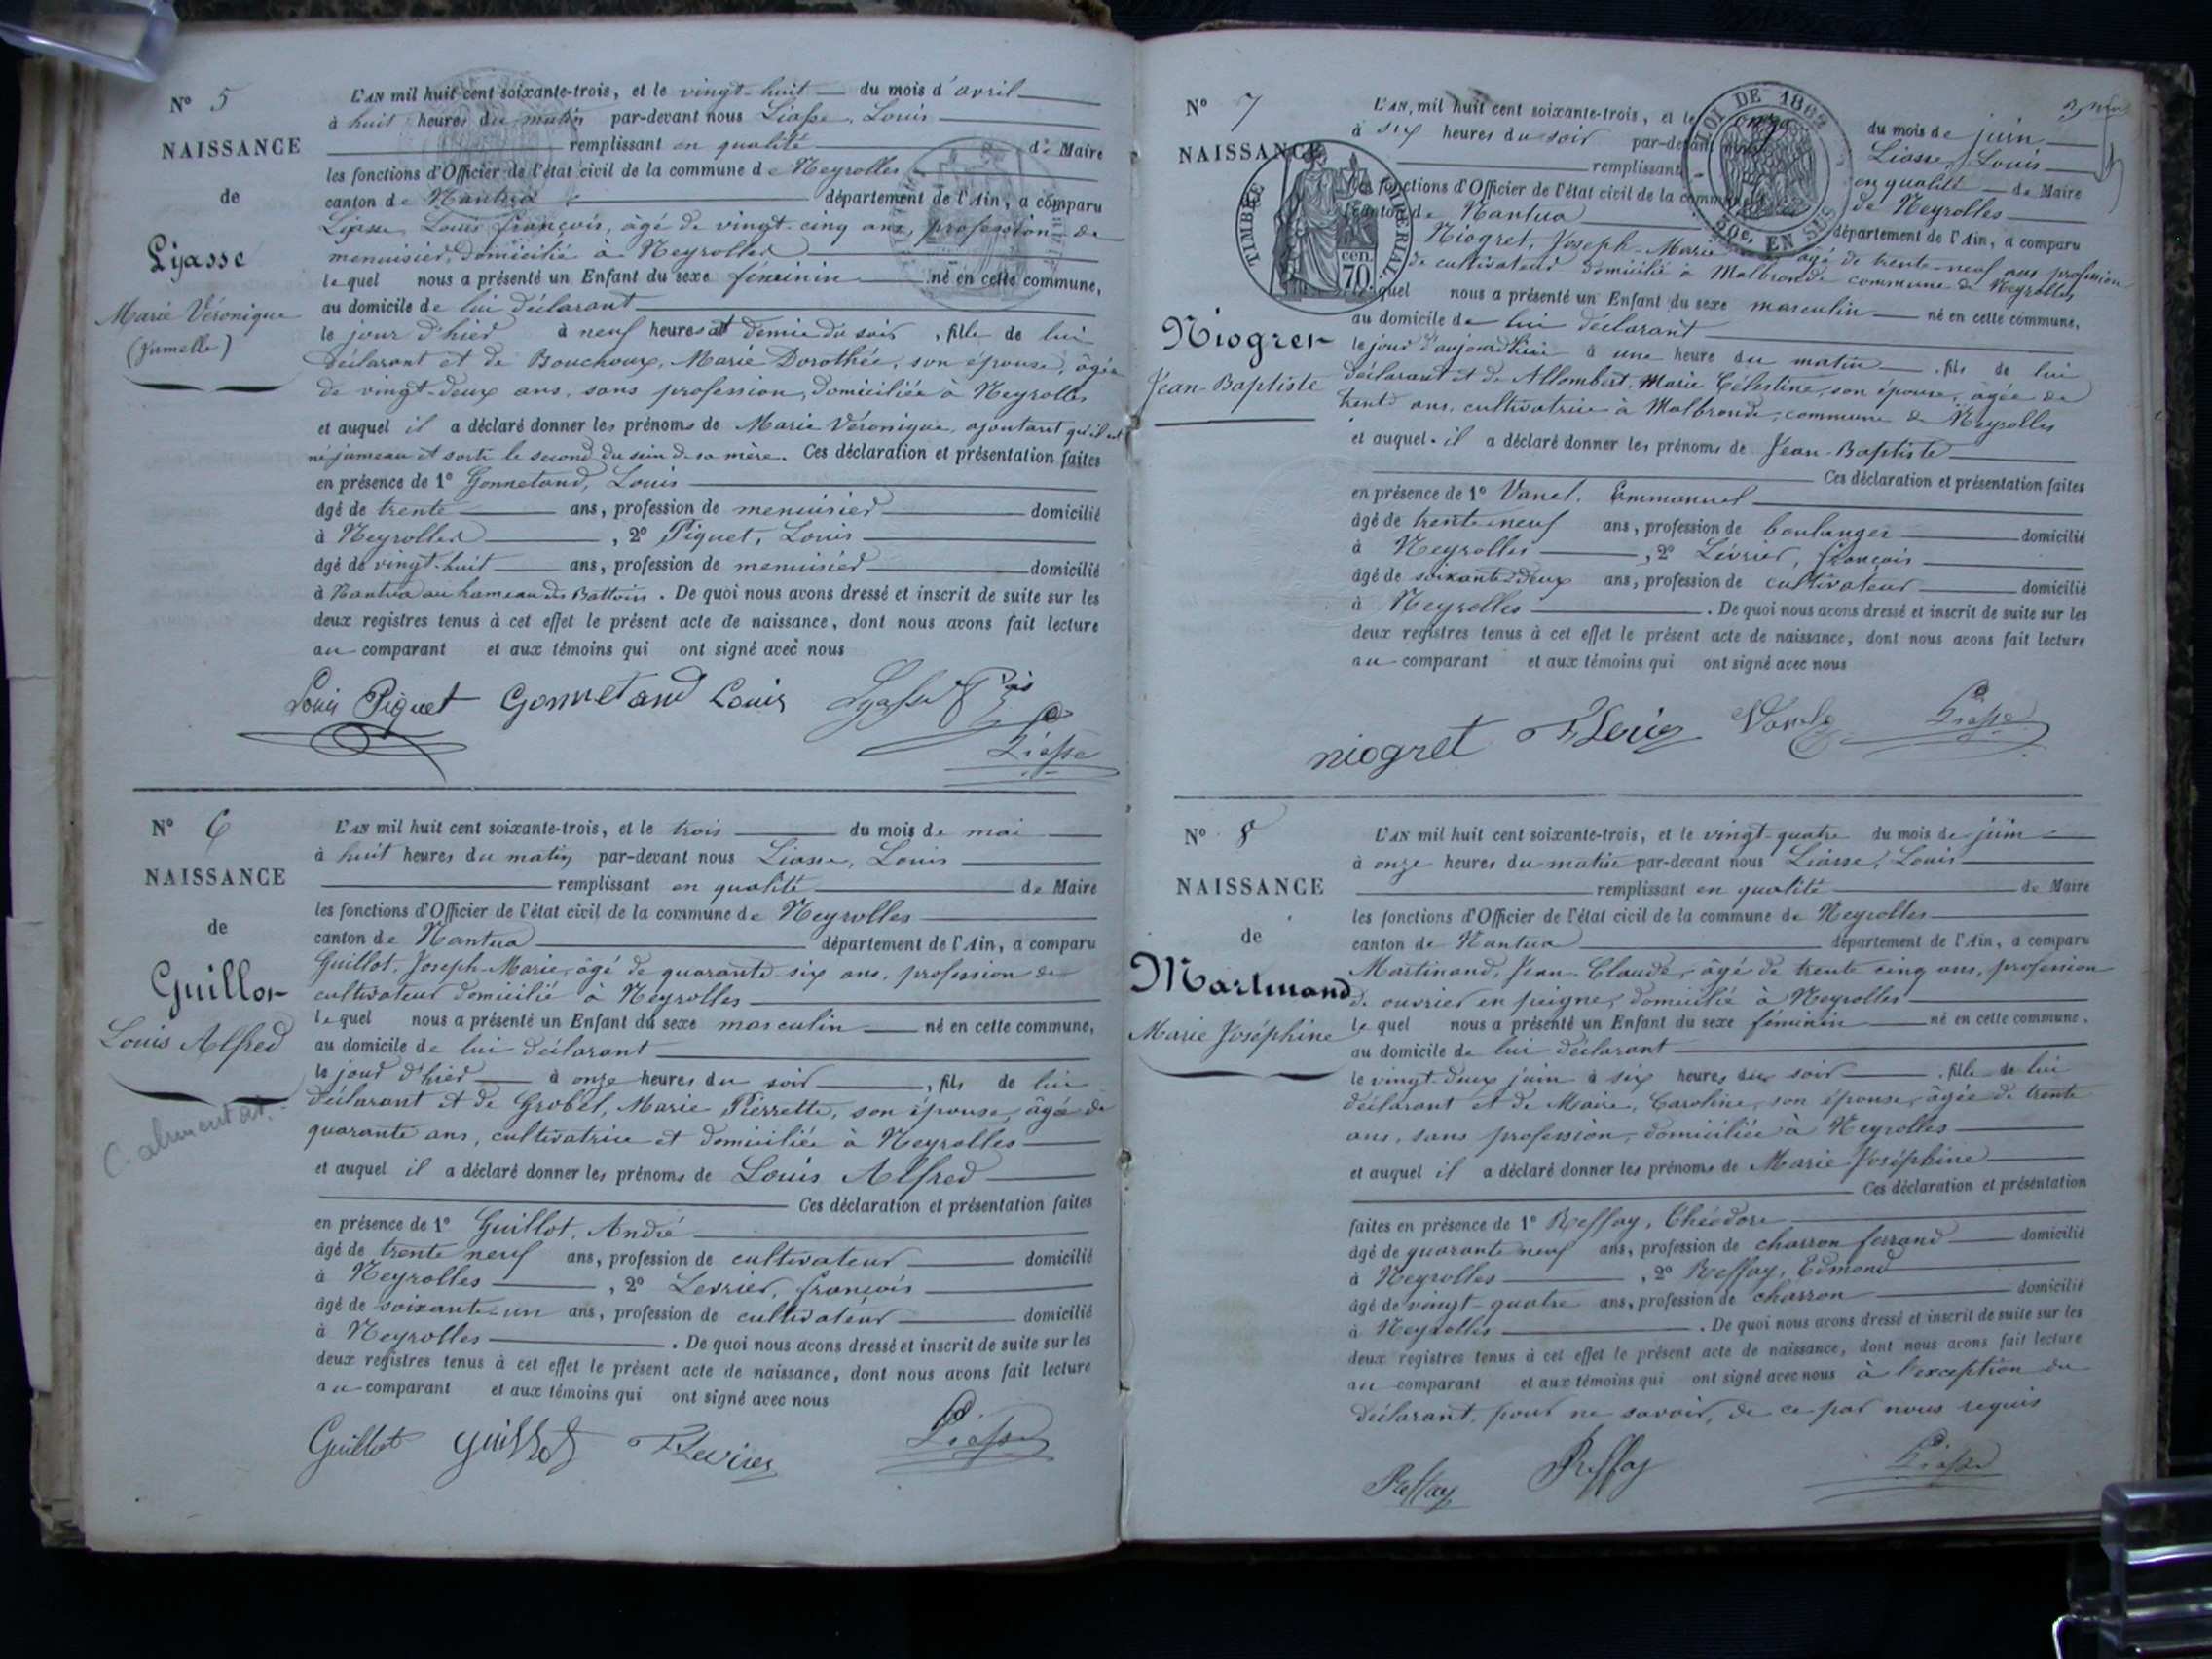 N° 5
NAISSANCE
de
Lyasse
Marie Véronique
(jumelle)
L'AN mil huit cent soixante-trois, et le vingt-huit du mois d'avril
à huit heures du matin par-devant nous Liasse, Louis
remplissant en qualité de Maire
les fonctions d'Officier de l'état civil de la commune de Neyrolles
canton de Nantua département de l'Ain, a comparu
Lyasse Louis François, âgé de vingt-cinq ans, profession de
menuisier, domicilié à Neyrolles
lequel nous a présenté un Enfant du sexe féminin né en cette commune,
au domicile de lui déclarant
le jour d'hier à neuf heures et demie du soir, fille de lui
déclarant et de Bouchoux, Marie Dorothée, son épouse, âgée
de vingt-deux ans, sans profession, domiciliée à Neyrolles
et auquel il a déclaré donner les prénoms de Marie Véronique, ajoutant qu'il est
né jumeau et sorti le second du sein de sa mère. Ces déclaration et présentation faites
en présence de 1° Gonnetand, Louis
âgé de trente ans, profession de menuisier domicilié
à Neyrolles, 2° Piquet, Louis
âgé de vingt-huit ans, profession de menuisier domicilié
à Nantua au hameau des Battoirs. De quoi nous avons dressé et inscrit de suite sur les
deux registres tenus à cet effet le présent acte de naissance, dont nous avons fait lecture
au comparant et aux témoins qui ont signé avec nous
Louis Piquet Gonnetand Louis Lyasse Liasse
N° 6
NAISSANCE
de
Guillot
Louis Alfred
C. alimentat.
L'AN mil huit cent soixante-trois, et le trois du mois de mai
à huit heures du matin par-devant nous Liasse, Louis
remplissant en qualité de Maire
les fonctions d'Officier de l'état civil de la commune de Neyrolles
canton de Nantua département de l'Ain, a comparu
Guillot, Joseph-Marie, âgé de quarante-six ans, profession de
cultivateur domicilié à Neyrolles
lequel nous a présenté un Enfant du sexe masculin né en cette commune,
au domicile de lui déclarant
le jour d'hier à onze heures du soir, fils de lui
déclarant et de Grobel, Marie Pierrette, son épouse, âgée de
quarante ans, cultivatrice et domiciliée à Neyrolles
et auquel il a déclaré donner les prénoms de Louis Alfred
Ces déclaration et présentation faites
en présence de 1° Guillot, André
âgé de trente neuf ans, profession de cultivateur domicilié
à Neyrolles, 2° Levrier, François
âgé de soixante-un ans, profession de cultivateur domicilié
à Neyrolles. De quoi nous avons dressé et inscrit de suite sur les
deux registres tenus à cet effet le présent acte de naissance, dont nous avons fait lecture
au comparant et aux témoins qui ont signé avec nous
Guillot guillot F Levrier Liasse
N° 7
NAISSANCE
Niogret
Jean-Baptiste
TIMBRE IMPÉRIAL
70 cen.
LOI DE 1862
50c. EN SUS
L'AN, mil huit cent soixante-trois, et le onze du mois de juin
à six heures du soir par-devant nous Liasse, Louis
remplissant en qualité de Maire
les fonctions d'Officier de l'état civil de la commune de Neyrolles
canton de Nantua département de l'Ain, a comparu
Niogret, Joseph-Marie âgé de trente-neuf ans profession
de cultivateur domicilié à Malbronde commune de Neyrolles
lequel nous a présenté un Enfant du sexe masculin né en cette commune,
au domicile de lui déclarant
le jour d'aujourd'hui à une heure du matin, fils de lui
déclarant et de Allombert, Marie Célestine, son épouse, âgée de
trente ans, cultivatrice à Malbronde, commune de Neyrolles
et auquel il a déclaré donner les prénoms de Jean-Baptiste
Ces déclaration et présentation faites
en présence de 1° Vanel, Emmanuel
âgé de trente-neuf ans, profession de boulanger domicilié
à Neyrolles, 2° Lévrier, François
âgé de soixante-deux ans, profession de cultivateur domicilié
à Neyrolles. De quoi nous avons dressé et inscrit de suite sur les
deux registres tenus à cet effet le présent acte de naissance, dont nous avons fait lecture
au comparant et aux témoins qui ont signé avec nous
niogret F Levrier Vanel Liasse
N° 8
NAISSANCE
de
Martinand
Marie Joséphine
L'AN mil huit cent soixante-trois, et le vingt-quatre du mois de juin
à onze heures du matin par-devant nous Liasse, Louis
remplissant en qualité de Maire
les fonctions d'Officier de l'état civil de la commune de Neyrolles
canton de Nantua département de l'Ain, a comparu
Martinand, Jean-Claude, âgé de trente cinq ans, profession
de ouvrier en peigne, domicilié à Neyrolles
lequel nous a présenté un Enfant du sexe féminin né en cette commune,
au domicile de lui déclarant
le vingt-deux juin à six heures du soir, fille de lui
déclarant et de Maire, Caroline, son épouse, âgée de trente
ans, sans profession, domiciliée à Neyrolles
et auquel il a déclaré donner les prénoms de Marie Joséphine
Ces déclaration et présentation
faites en présence de 1° Reffay, Théodore
âgé de quarante neuf ans, profession de charron ferrand domicilié
à Neyrolles, 2° Reffay, Edmond
âgé de vingt-quatre ans, profession de charron domicilié
à Neyrolles. De quoi nous avons dressé et inscrit de suite sur les
deux registres tenus à cet effet le présent acte de naissance, dont nous avons fait lecture
au comparant et aux témoins qui ont signé avec nous à l'exception du
déclarant, pour ne savoir, de ce par nous requis
Reffay Reffay Liasse